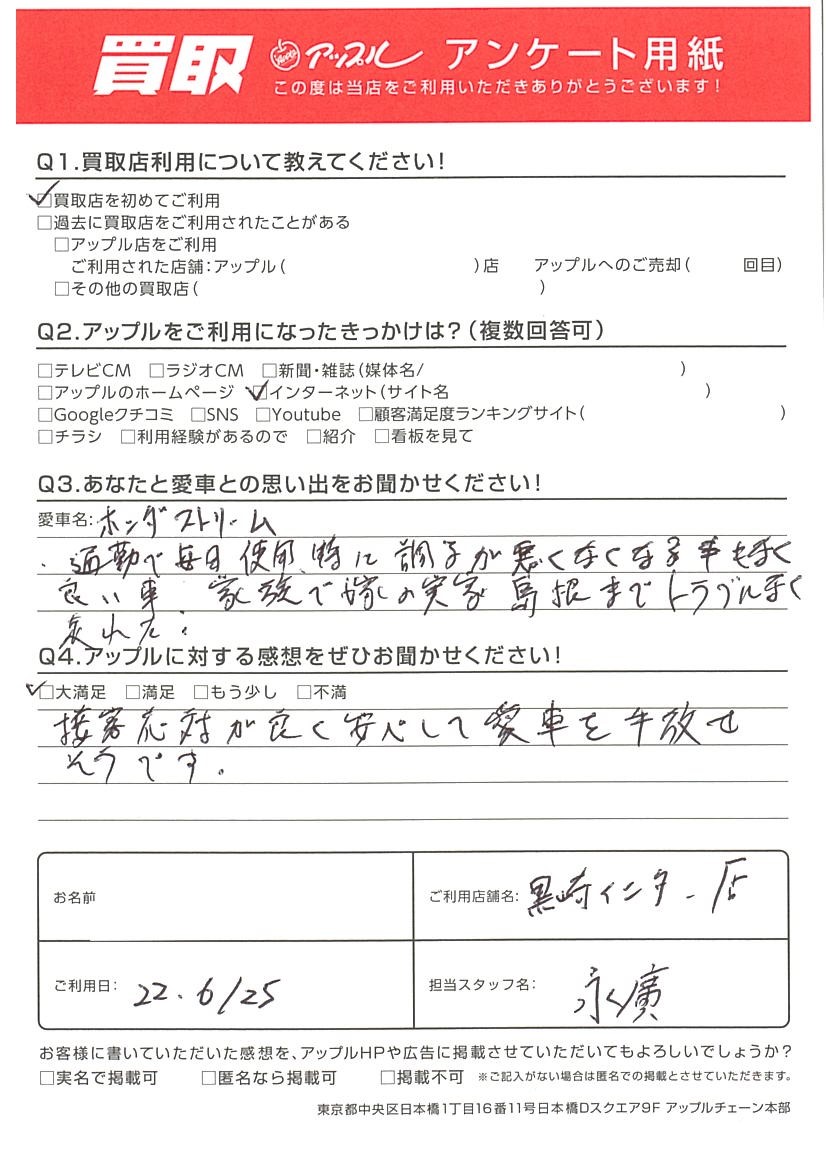 買取 アップル アンケート用紙
この度は当店をご利用いただきありがとうございます!
Q1.買取店利用について教えてください!
☑買取店を初めてご利用
□過去に買取店をご利用されたことがある
□アップル店をご利用
ご利用された店舗:アップル( )店 アップルへのご売却( 回目)
□その他の買取店( )
Q2.アップルをご利用になったきっかけは?(複数回答可)
□テレビCM □ラジオCM □新聞・雑誌(媒体名/ )
□アップルのホームページ ☑インターネット(サイト名 )
□Googleクチコミ □SNS □Youtube □顧客満足度ランキングサイト( )
□チラシ □利用経験があるので □紹介 □看板を見て
Q3.あなたと愛車との思い出をお聞かせください!
愛車名:ホンダストリーム
・通勤で毎日使用、特に調子が悪くなくなる事もなく
良い車 家族で嫁の実家島根までトラブルなく
走れた。
Q4.アップルに対する感想をぜひお聞かせください!
☑大満足 □満足 □もう少し □不満
接客応対が良く安心して愛車を手放せ
そうです。
お名前
ご利用店舗名:黒崎インター店
ご利用日:22.6/25
担当スタッフ名:永廣
お客様に書いていただいた感想を、アップルHPや広告に掲載させていただいてもよろしいでしょうか?
□実名で掲載可 □匿名なら掲載可 □掲載不可 ※ご記入がない場合は匿名での掲載とさせていただきます。
東京都中央区日本橋1丁目16番11号日本橋Dスクエア9F アップルチェーン本部